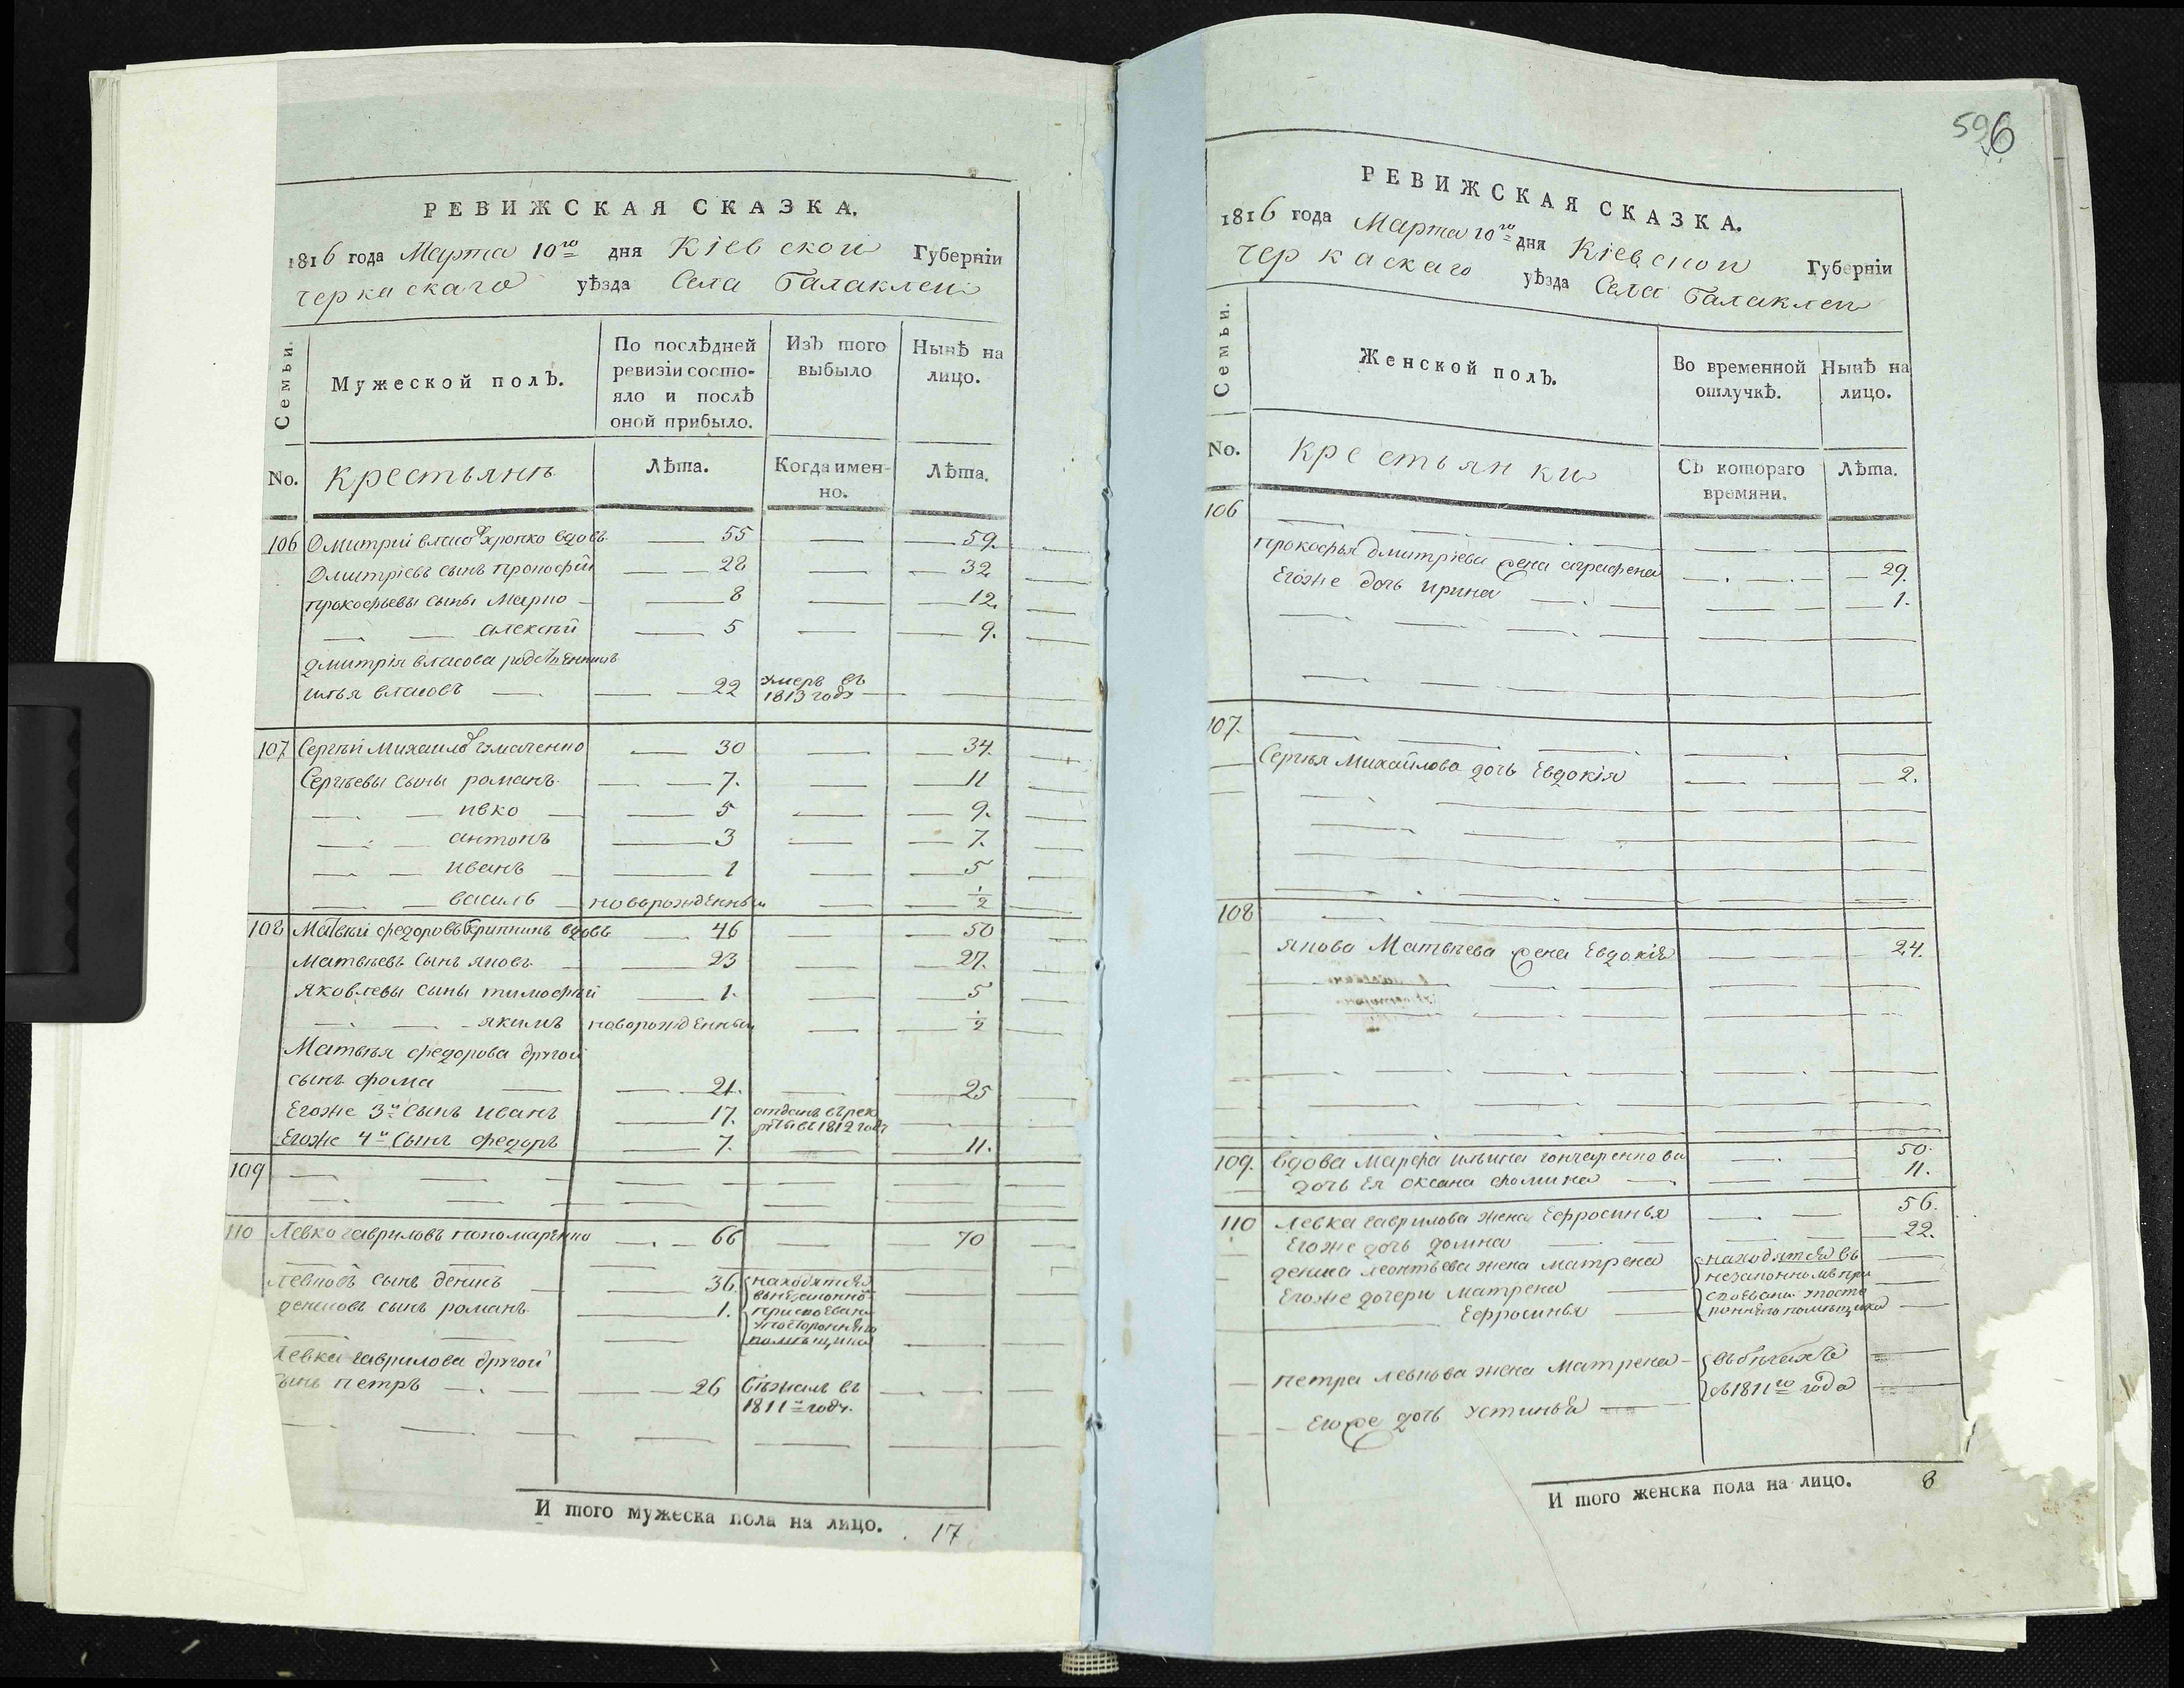 РЕВИЖСКАЯ СКАЗКА.
1816 года Марта 10го дня Кіевской Губерніи
Черкаскаго уѣзда Села Балаклеи
Семьи.
Мужеской полЪ.
По послѣдней ревизіи состояло и послѣ оной прибыло.
ИзЪ того выбыло
Нынѣ на лицо.
No.
крестьянъ
Лѣта.
Когда именно.
Лѣта.
106 Дмитрій власовъ вдовъ 55 59.
Дмитріевъ сынъ прокофій 28 32
прокофьевы сыны Марко 8 12.
алексѣй 5 9.
Дмитрія власова родственникъ
илья власовъ 22 умеръ въ 1813 году
107 Сергѣй Михайловъ 30 34.
Сергѣевы сыны романъ 7. 11
ивко 5 9.
антонъ 3 7.
иванъ 1 5
василь новорожденный ½
108 Матвѣй федоровъ вдовъ 46 50
Матвѣевъ сынъ яковъ 23 27.
Яковлевы сыны тимофѣй 1. 5
якимъ новорожденный ½
Матвѣя федорова другой
сынъ фома 21. 25
Егоже 3й сынъ иванъ 17. отданъ въ рекруты въ 1812 году
Егоже 4й сынъ федоръ 7. 11.
109
110 Левко гавриловъ пономаренко 66 70
Левковъ сынъ денисъ 36. находятся
въ незаконно
денисовъ сынъ романъ 1. присвоеваніи
у посторонняго
помѣщика
Левка гаврилова другой
сынъ петръ 26 бѣжалъ въ
1811м году.
И того мужеска пола на лицо. 17
596
РЕВИЖСКАЯ СКАЗКА.
1816 года Марта 10го дня Кіевской Губерніи
Черкаскаго уѣзда Села Балаклеи
Семьи.
Женской полЪ.
Во временной отлучкѣ.
Нынѣ на лицо.
No.
крестьянки
СЪ котораго времяни.
Лѣта.
106
прокофья Дмитріева жена аграфена 29.
Егоже дочь ирина 1.
107.
Сергѣя Михайлова дочь Евдокія 2.
108
якова Матвѣева жена Евдокія 24.
109. вдова Марфа ильина гончаренкова 50.
дочь Ея оксана фомина 11.
110 Левка гаврилова жена Ефросинья 56.
Егоже дочь домна 22.
дениса леонтьева жена матрена находятся въ
Егоже дочери матрена незаконномъ при
Ефросинья своеваніи у посто
ронняго помѣщика
петра левкова жена матрена въ бѣгахъ
съ 1811го года
Егоже дочь устинья
И того женска пола на лицо. 8